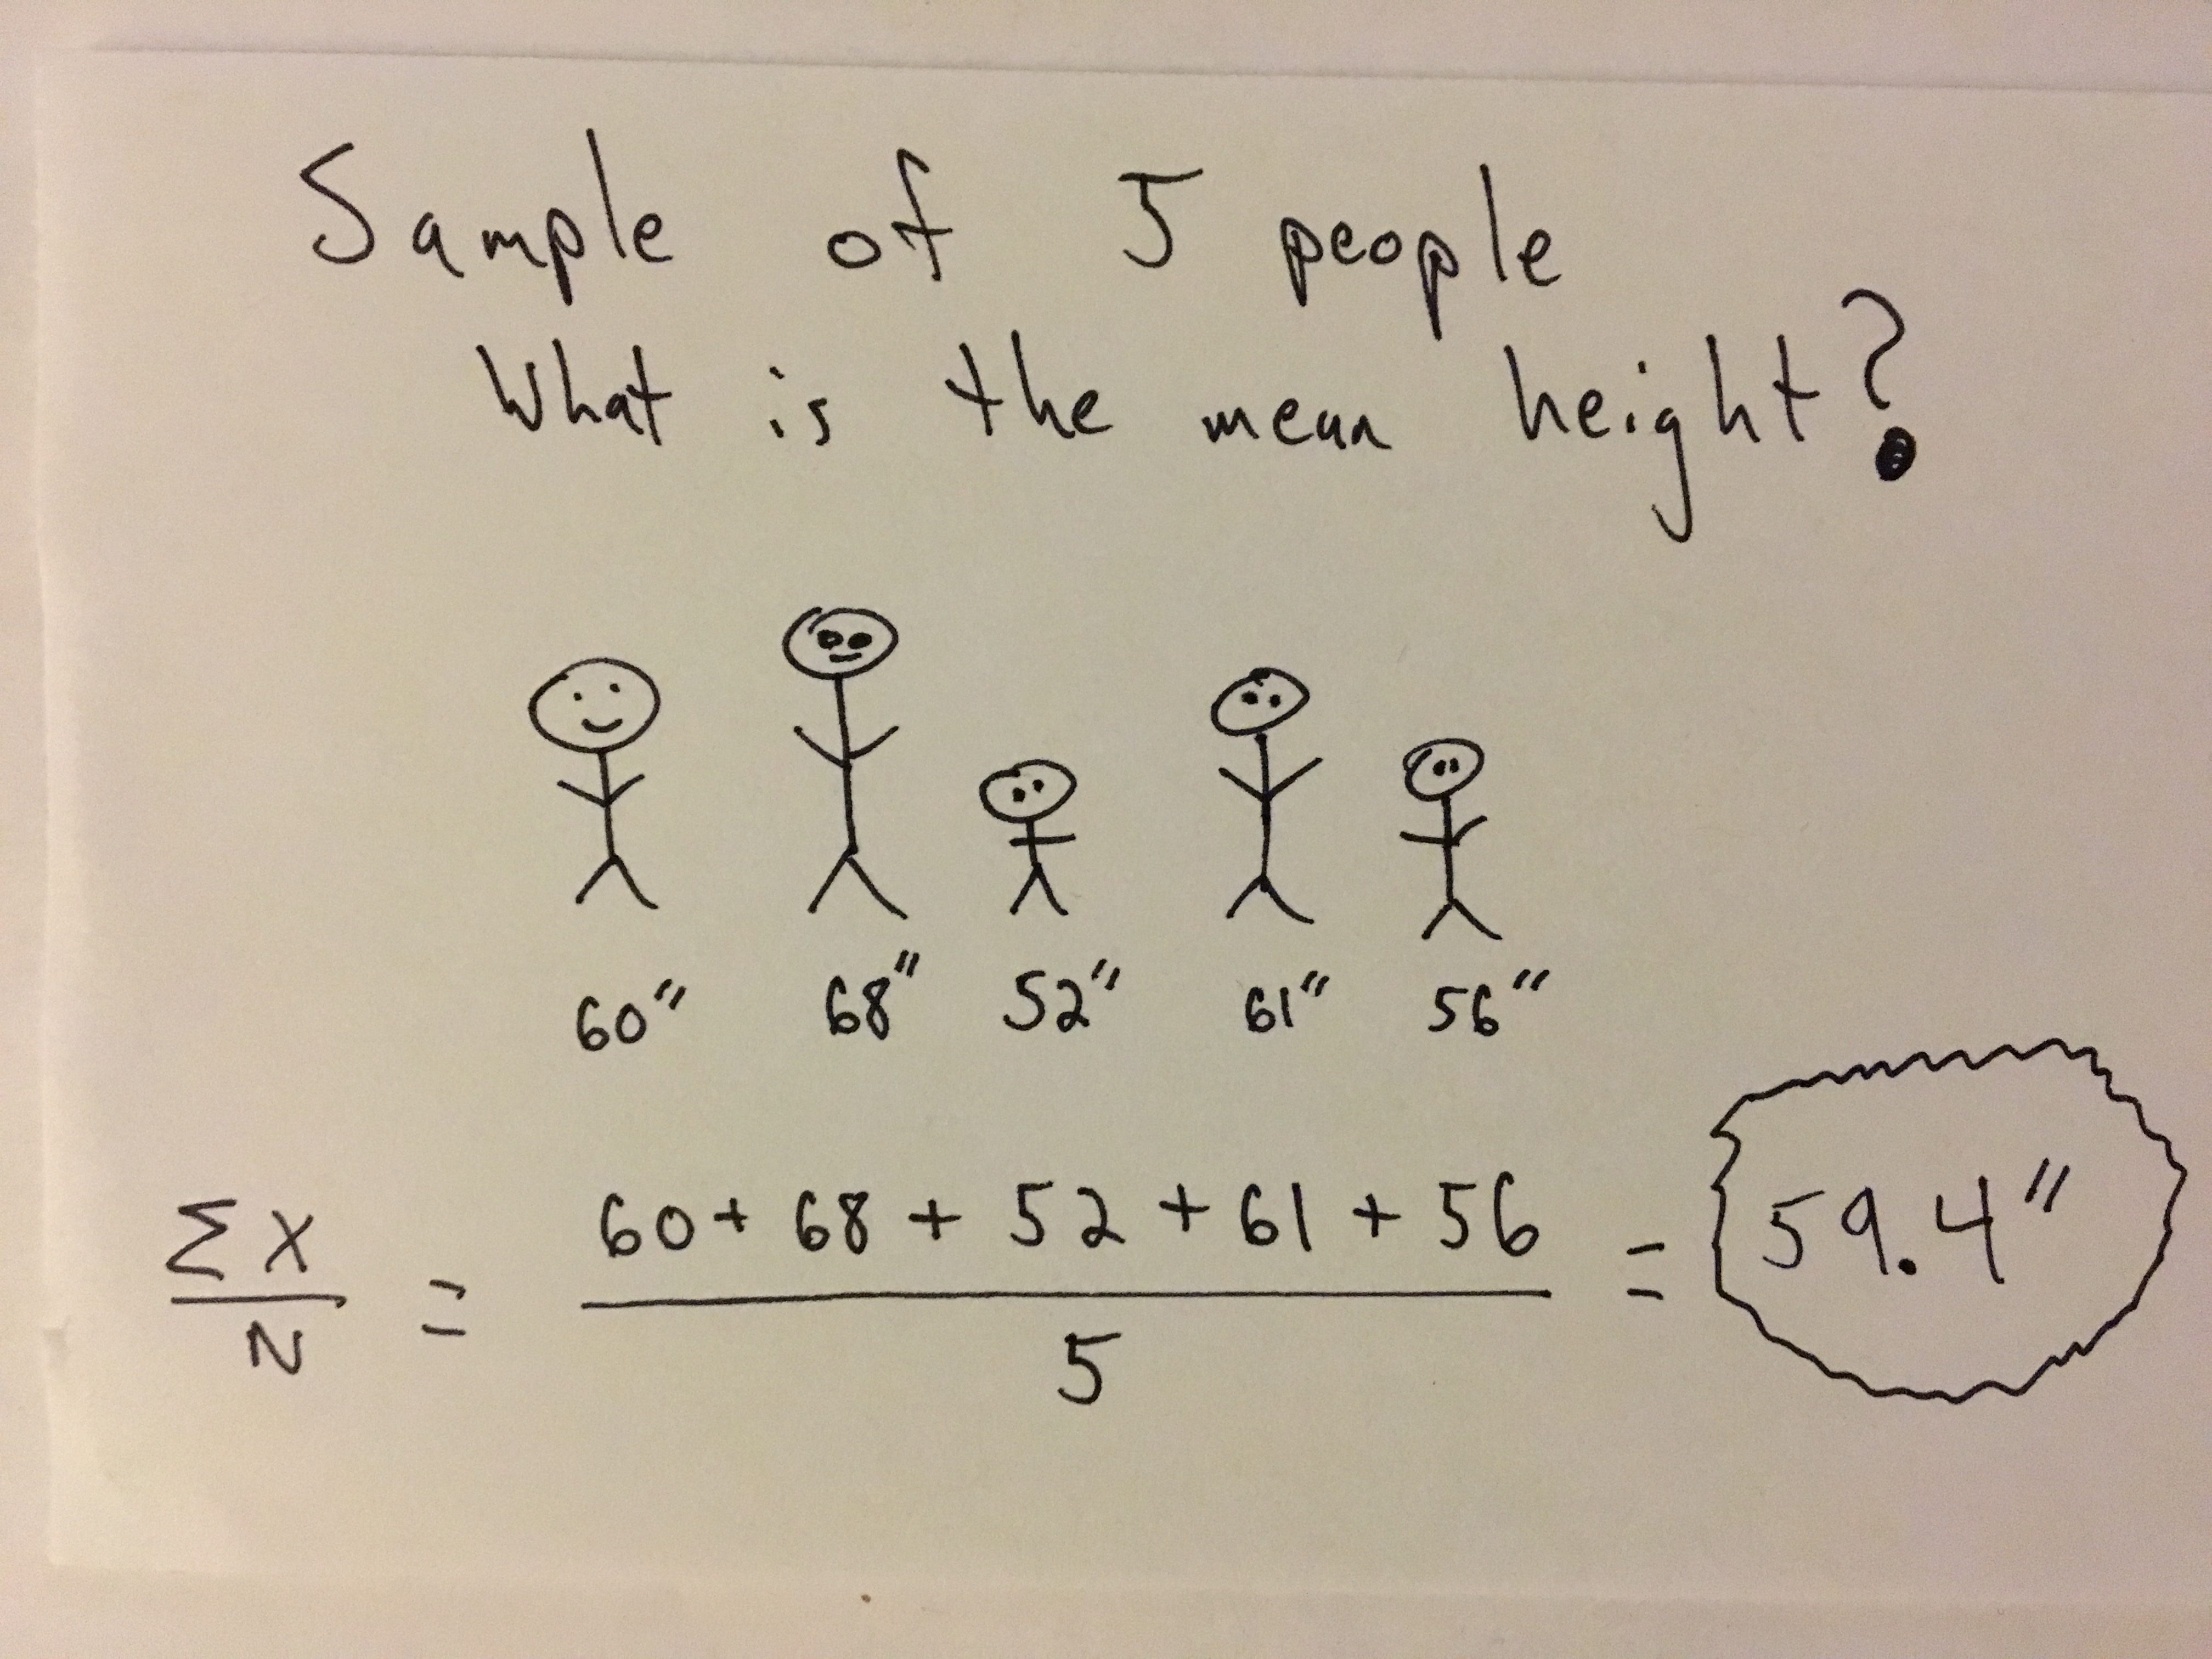 Sample of 5 people
What is the mean height?
60" 68" 52" 61" 56"
ΣX/N = 60 + 68 + 52 + 61 + 56 / 5 = 59.4"